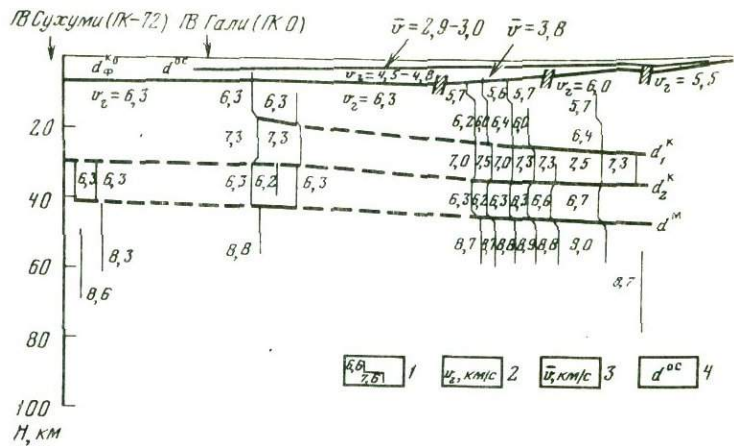 ПВ Сухуми (ПК-72) ПВ Гали (ПК 0)
v̄ = 2,9–3,0 v̄ = 3,8
d_ф^кв d^ос v_г = 4,5–4,8 v_г = 6,0 v_г = 5,5
v_г = 6,3 6,3 6,3 v_г = 6,3 5,7 5,6 5,7 5,7
20 7,3 7,3 6,2 6,0 6,4 6,0 6,4 d₁^к
7,0 7,5 7,0 7,3 7,3 7,5 7,3 d₂^к
40 6,3 6,3 6,3 6,2 6,3 6,3 6,2 6,3 6,3 6,6 6,7 d^м
8,3 8,8 8,7 8,7 8,8 8,9 8,8 9,0
60 8,6 8,7
80
6,6 7,6 1 v_г, км/с 2 v̄, км/с 3 d^ос 4
100
H, км